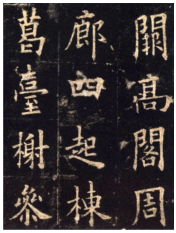 闕髙閣周
廊四起棟
葛臺榭參